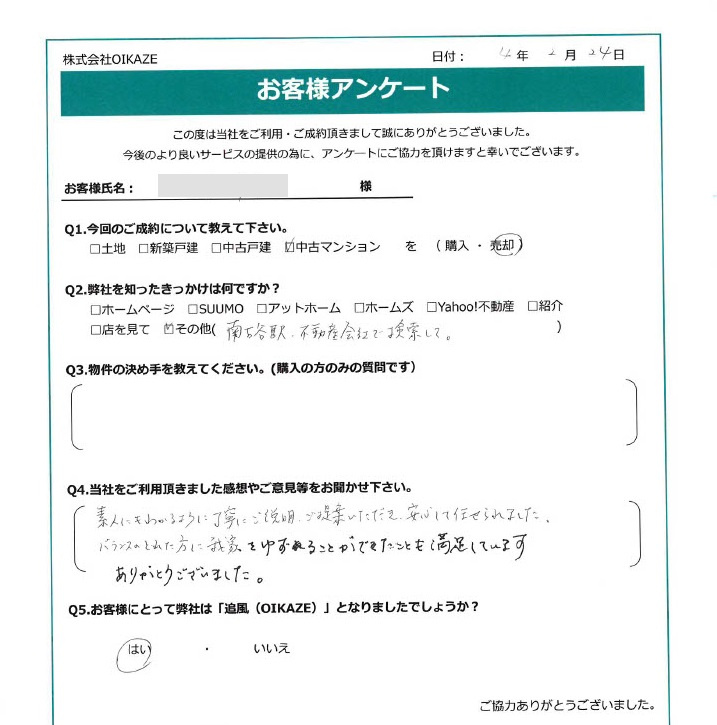 株式会社OIKAZE 日付： 4年 2月 24日
お客様アンケート
この度は当社をご利用・ご成約頂きまして誠にありがとうございました。
今後のより良いサービスの提供の為に、アンケートにご協力を頂けますと幸いでございます。
お客様氏名： 様
Q1.今回のご成約について教えて下さい。
□土地 □新築戸建 □中古戸建 ☑中古マンション を （ 購入 ・ 売却 ）
Q2.弊社を知ったきっかけは何ですか？
□ホームページ □SUUMO □アットホーム □ホームズ □Yahoo!不動産 □紹介
□店を見て ☑その他( 南古谷駅、不動産会社で検索して。 )
Q3.物件の決め手を教えてください。(購入の方のみの質問です）
Q4.当社をご利用頂きました感想やご意見等をお聞かせ下さい。
素人にもわかるように丁寧にご説明、ご提案いただき、安心して任せられました。
バランスのとれた方に我家をゆずれることができたことも満足しています
ありがとうございました。
Q5.お客様にとって弊社は「追風（OIKAZE）」となりましたでしょうか？
はい ・ いいえ
ご協力ありがとうございました。